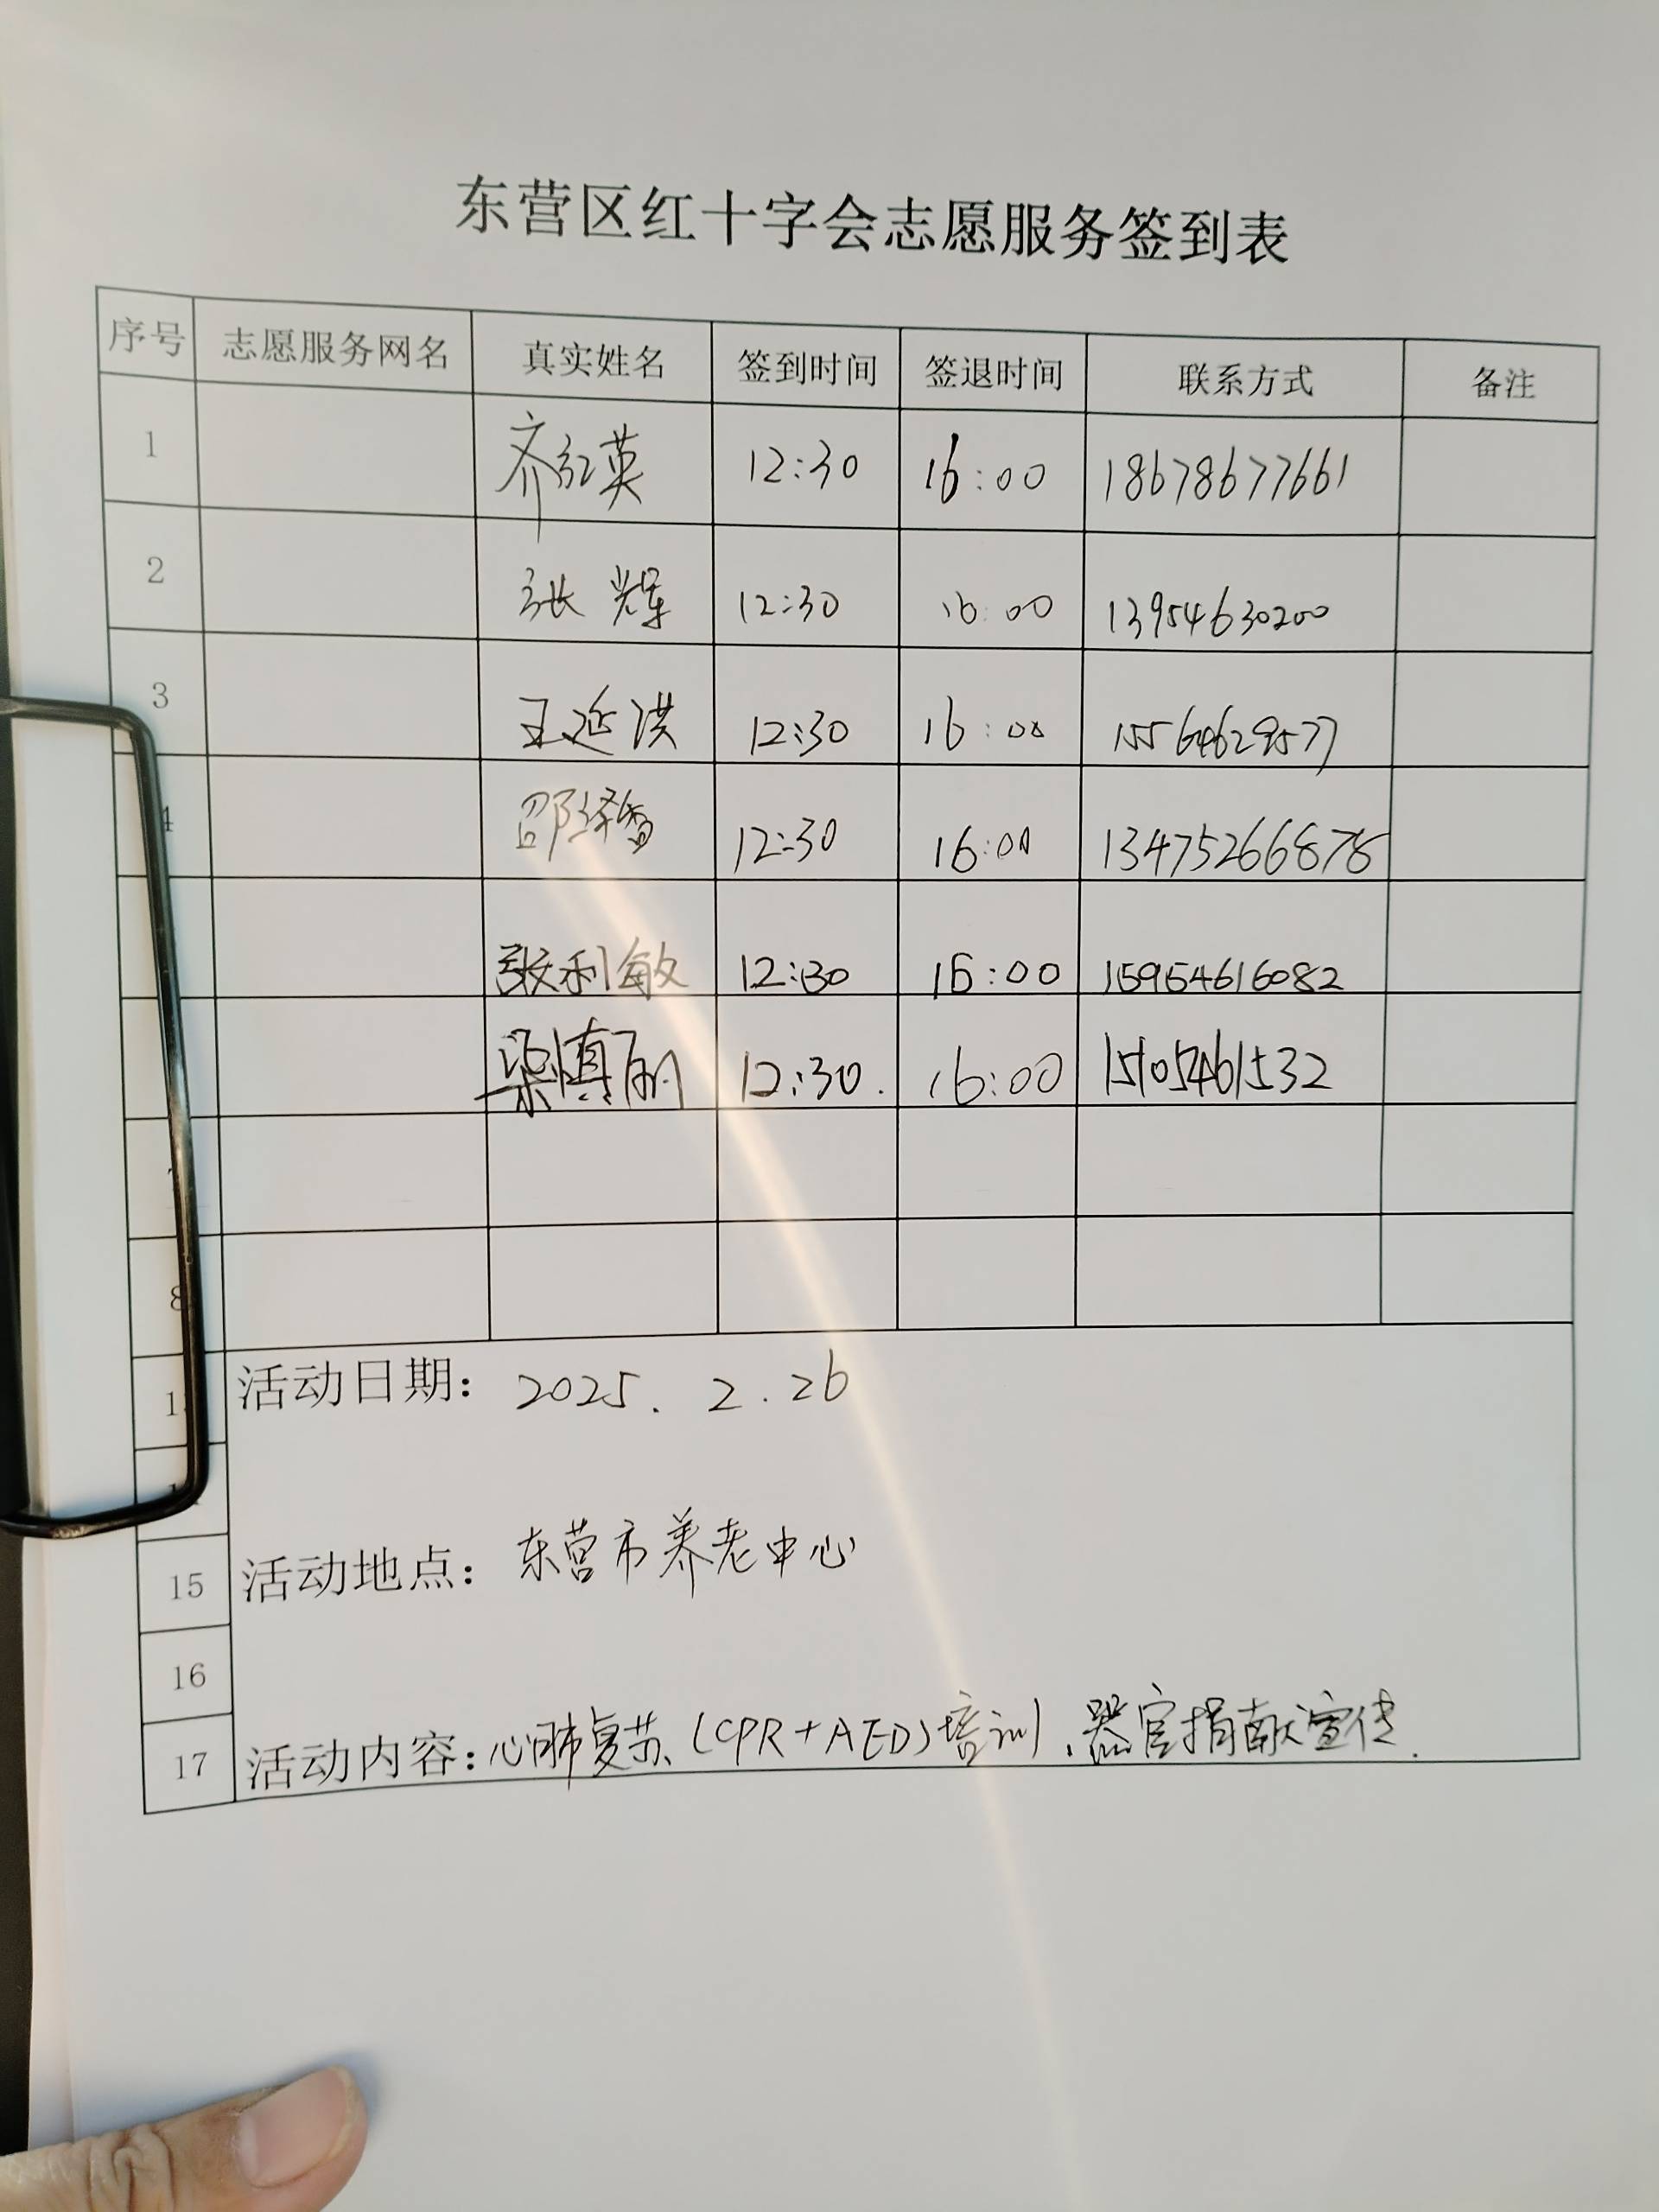 东营区红十字会志愿服务签到表
序号 志愿服务网名 真实姓名 签到时间 签退时间 联系方式 备注
1 齐红英 12:30 16:00 18678677661
2 张辉 12:30 16:00 13954630200
3 王延洪 12:30 16:00 15564629577
4 邵绎香 12:30 16:00 13475266878
张利敏 12:30 16:00 15954616082
梁慎丽 12:30. 16:00 15105461532
8
活动日期：2025. 2. 26
15 活动地点：东营市养老中心
16
17 活动内容：心肺复苏(CPR+AED)培训、器官捐献宣传.